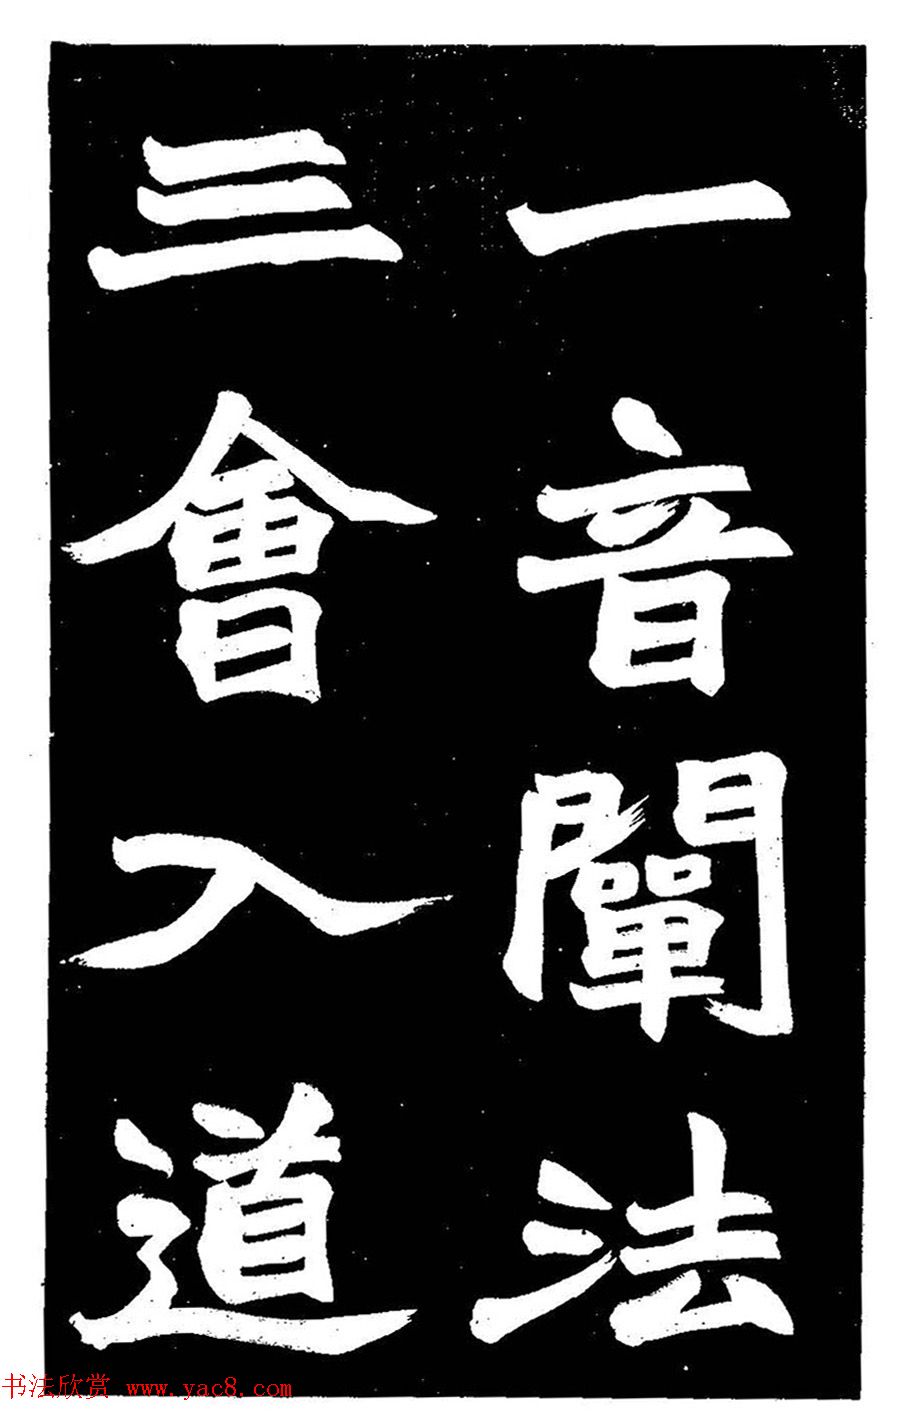 一音闡法
三會入道
书法欣赏 www.yac8.com